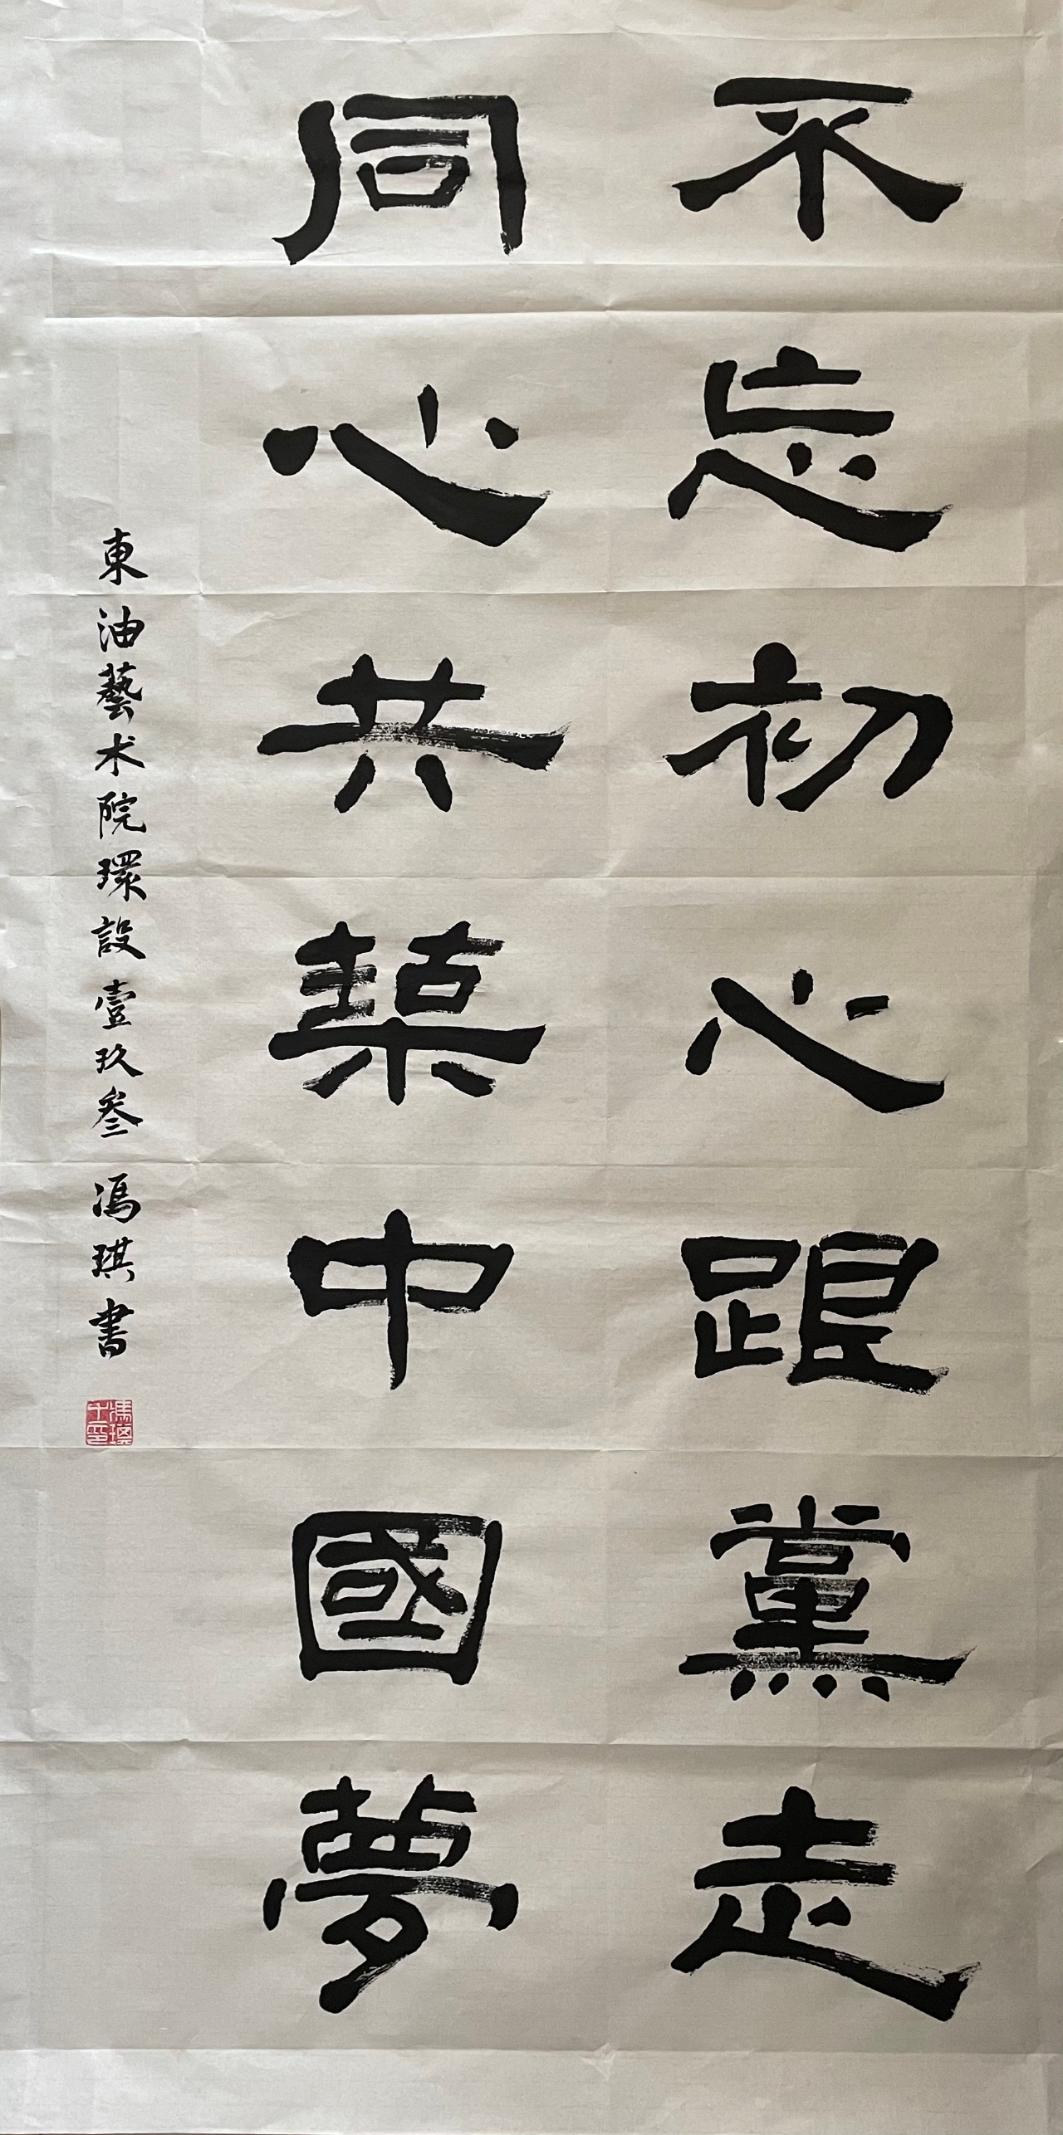 不忘初心跟黨走
同心共築中國夢
東油藝术院環設壹玖叁馮琪書